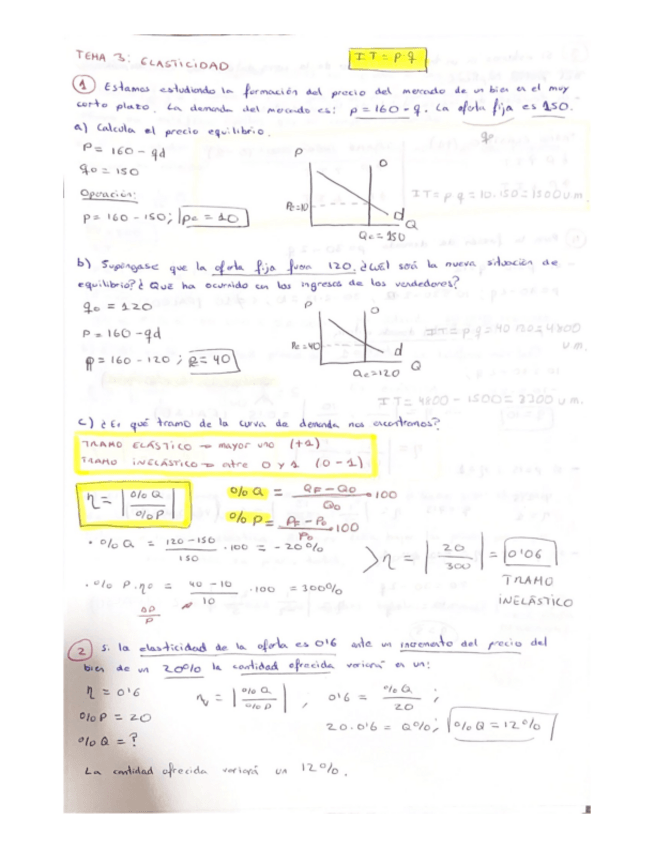 TEMA 3: ELASTICIDAD
IT = p·q
1 Estamos estudiando la formación del precio del mercado de un bien en el muy
corto plazo. La demanda del mercado es: p = 160 - q. La oferta fija es 150.
a) Calcula el precio equilibrio.
P = 160 - qd
qo = 150
Operación:
P = 160 - 150; pe = 10
P
O
Pe=10
d
Q
Qe = 150
IT = p·q = 10·150 = 1500 u.m.
b) Supóngase que la oferta fija fuera 120. ¿Cuál será la nueva situación de
equilibrio? ¿Qué ha ocurrido con los ingresos de los vendedores?
qo = 120
P = 160 - qd
P = 160 - 120; P = 40
P
O
Pe=40
d
Q
Qe=120
IT = p·q = 40·120 = 4800
u.m.
IT = 4800 - 1500 = 3300 u.m.
c) ¿En qué tramo de la curva de demanda nos encontramos?
TRAMO ELÁSTICO → mayor uno (+1)
TRAMO INELÁSTICO → entre 0 y 1 (0-1)
η = |%Q / %P|
%Q = (QF - Q0) / Q0 · 100
%P = (PF - P0) / P0 · 100
· %Q = (120 - 150) / 150 · 100 = -20%
η = |20 / 300| = 0'06
TRAMO
INELÁSTICO
· %P = (40 - 10) / 10 · 100 = 300%
ΔP / P
2 Si la elasticidad de la oferta es 0'6 ante un incremento del precio del
bien de un 20% la cantidad ofrecida variará en un:
η = 0'6
%P = 20
%Q = ?
η = |%Q / %P| ; 0'6 = %Q / 20 ;
20·0'6 = Q%; %Q = 12%
La cantidad ofrecida variará un 12%.